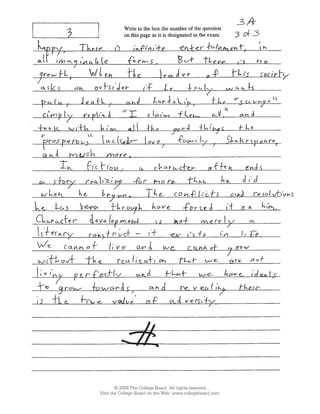 3A
3
Write in the box the number of the question
on this page as it is designated in the exam.
3 of 3
happy. There is infinite entertainment, in
all imaginable forms. But there is no
growth. When the leader of this society
asks an outsider if he truly wants
pain, death, and hardship, the "savage"
simply replied "I claim them all," and
took with him all the good things the
"prosperous" lacked: love, family, Shakespeare,
and much more.
In fiction, a character often ends
a story realizing far more than he did
when he began. The conflicts and resolutions
he has been through have forced it on him.
Character development is not merely a
literary construct - it exists in life.
We cannot live and we cannot grow
without the realization that we are not
living perfectly and that we have ideals
to grow towards, and revealing these
is the true value of adversity.
© 2009 The College Board. All rights reserved.
Visit the College Board on the Web: www.collegeboard.com.